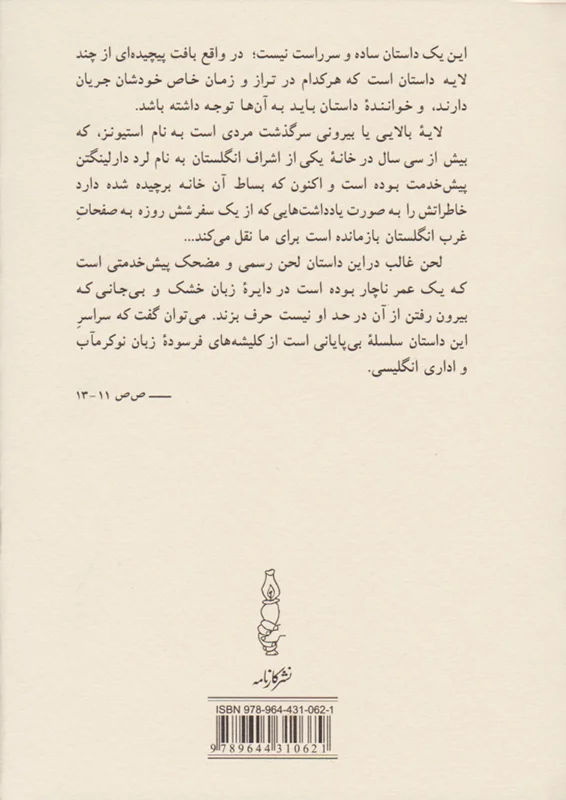 این یک داستان ساده و سرراست نیست؛ در واقع بافت پیچیده‌ای از چند
لایه داستان است که هرکدام در تراز و زمان خاص خودشان جریان
دارند، و خوانندهٔ داستان باید به آن‌ها توجه داشته باشد.
لایهٔ بالایی یا بیرونی سرگذشت مردی است به نام استیونز، که
بیش از سی سال در خانهٔ یکی از اشراف انگلستان به نام لرد دارلینگتن
پیش‌خدمت بوده است و اکنون که بساط آن خانه برچیده شده دارد
خاطراتش را به صورت یادداشت‌هایی که از یک سفر شش روزه به صفحاتِ
غرب انگلستان بازمانده است برای ما نقل می‌کند...
لحن غالب دراین داستان لحن رسمی و مضحک پیش‌خدمتی است
که یک عمر ناچار بوده است در دایرهٔ زبان خشک و بی‌جانی که
بیرون رفتن از آن در حد او نیست حرف بزند. می‌توان گفت که سراسرِ
این داستان سلسلهٔ بی‌پایانی است از کلیشه‌های فرسودهٔ زبان نوکرمآب
و اداری انگلیسی.
— ص‌ص ۱۱-۱۳
نشر کارنامه
ISBN 978-964-431-062-1
9789644310621